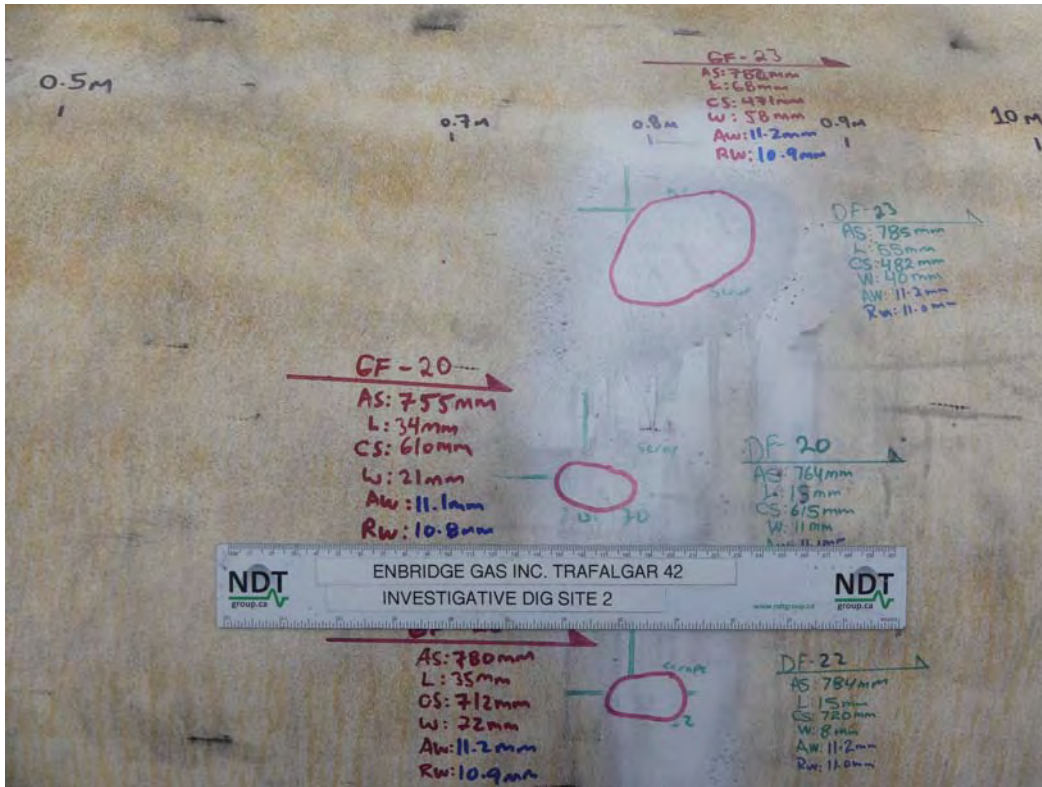 0.5M
0.7M
0.8M
0.9M
10M
GF-23
L:68mm
CS:471mm
W:58mm
AW:11.2mm
RW:10.9mm
DF-23
AS:785mm
CS:482mm
W:40mm
AW:11.2mm
RW:11.0mm
GF-20
AS:755mm
L:34mm
CS:610mm
W:21mm
AW:11.1mm
RW:10.8mm
Scrap
DF-20
AS:764mm
L:15mm
CS:615mm
W:11mm
AW:11.1mm
NDT
group.ca
ENBRIDGE GAS INC. TRAFALGAR 42
INVESTIGATIVE DIG SITE 2
www.ndtgroup.ca
NDT
group.ca
AS:780mm
L:35mm
CS:712mm
W:22mm
AW:11.2mm
RW:10.9mm
DF-22
AS:784mm
L:15mm
CS:720mm
W:8mm
AW:11.2mm
RW:11.0mm